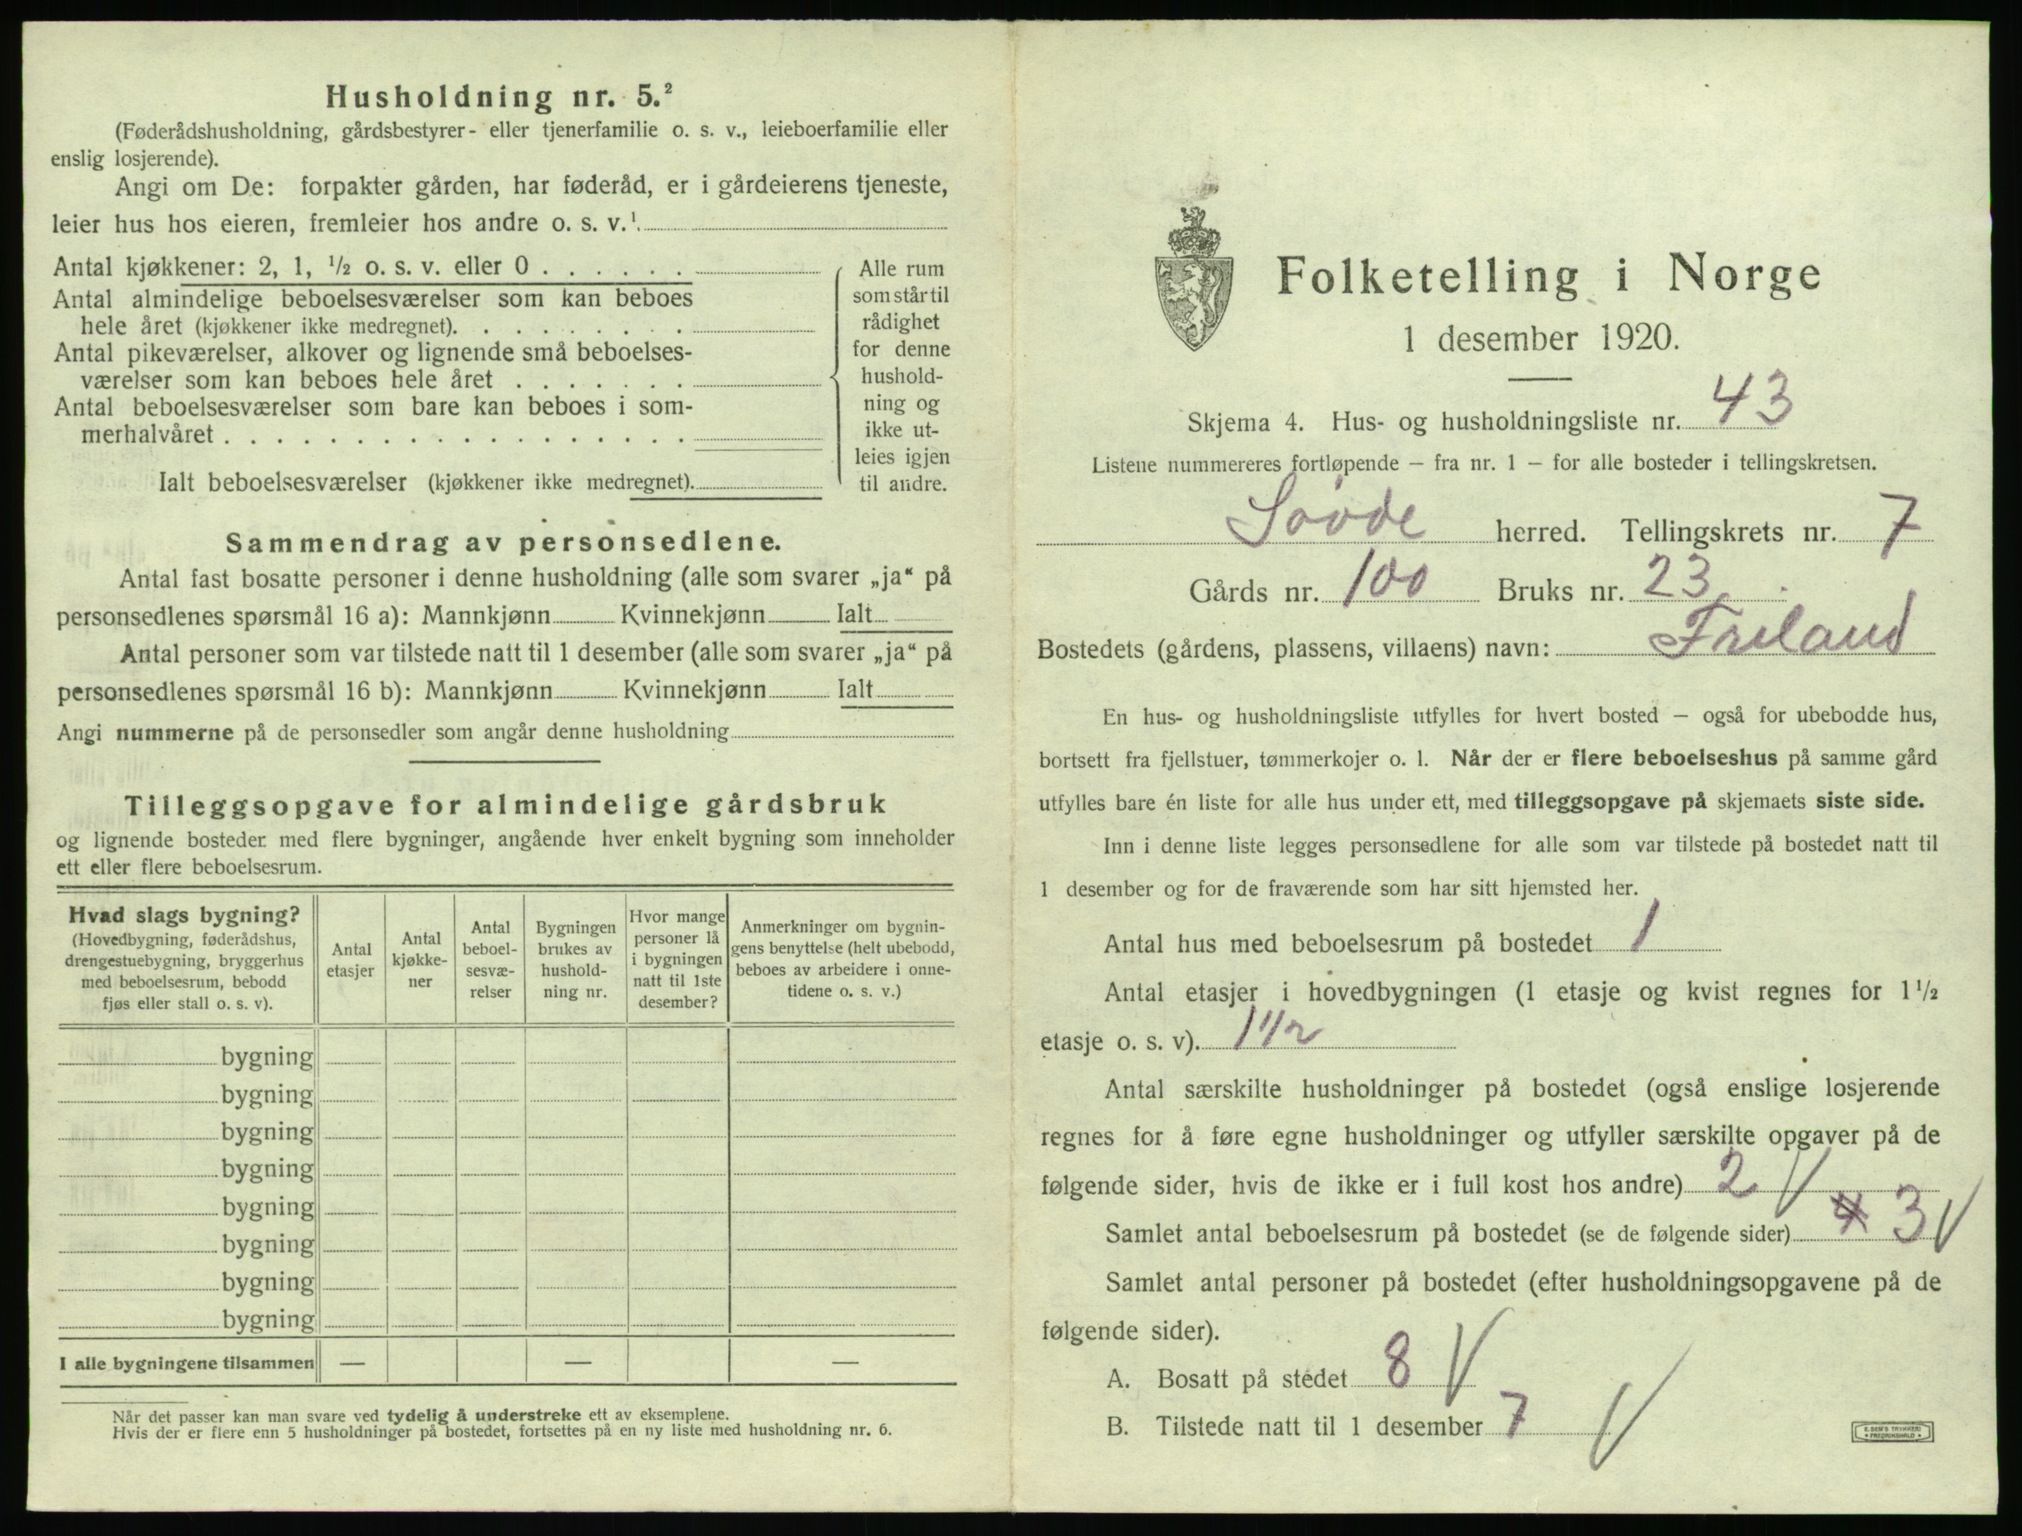 Husholdning nr. 5.²
(Føderådshusholdning, gårdsbestyrer- eller tjenerfamilie o. s. v., leieboerfamilie eller
enslig losjerende).
Angi om De: forpakter gården, har føderåd, er i gårdeierens tjeneste,
leier hus hos eieren, fremleier hos andre o. s. v.¹
Antal kjøkkener: 2, 1, ½ o. s. v. eller 0 . . . . . .
Antal almindelige beboelsesværelser som kan beboes
hele året (kjøkkener ikke medregnet). . . . . . . . .
Antal pikeværelser, alkover og lignende små beboelses-
værelser som kan beboes hele året . . . . . . .
Antal beboelsesværelser som bare kan beboes i som-
merhalvåret . . . . . . . . . . . . . . . . . .
Ialt beboelsesværelser (kjøkkener ikke medregnet).
Alle rum
som står til
rådighet
for denne
hushold-
ning og
ikke ut-
leies igjen
til andre.
Sammendrag av personsedlene.
Antal fast bosatte personer i denne husholdning (alle som svarer „ja“ på
personsedlenes spørsmål 16 a): Mannkjønn Kvinnekjønn Ialt
Antal personer som var tilstede natt til 1 desember (alle som svarer „ja“ på
personsedlenes spørsmål 16 b): Mannkjønn Kvinnekjønn Ialt
Angi nummerne på de personsedler som angår denne husholdning
Tilleggsopgave for almindelige gårdsbruk
og lignende bosteder med flere bygninger, angående hver enkelt bygning som inneholder
ett eller flere beboelsesrum.
Hvad slags bygning?
(Hovedbygning, føderådshus,
drengestuebygning, bryggerhus
med beboelsesrum, bebodd
fjøs eller stall o. s. v).
Antal
etasjer
Antal
kjøkke-
ner
Antal
beboel-
sesvæ-
relser
Bygningen
brukes av
hushold-
ning nr.
Hvor mange
personer lå
i bygningen
natt til 1ste
desember?
Anmerkninger om bygnin-
gens benyttelse (helt ubebodd,
beboes av arbeidere i onne-
tidene o. s. v.)
bygning
bygning
bygning
bygning
bygning
bygning
bygning
bygning
I alle bygningene tilsammen — — —
Når det passer kan man svare ved tydelig å understreke ett av eksemplene.
Hvis der er flere enn 5 husholdninger på bostedet, fortsettes på en ny liste med husholdning nr. 6.
Folketelling i Norge
1 desember 1920.
Skjema 4. Hus- og husholdningsliste nr. 43
Listene nummereres fortløpende – fra nr. 1 – for alle bosteder i tellingskretsen.
Søvde herred. Tellingskrets nr. 7
Gårds nr. 100 Bruks nr. 23
Bostedets (gårdens, plassens, villaens) navn: Friland
En hus- og husholdningsliste utfylles for hvert bosted – også for ubebodde hus,
bortsett fra fjellstuer, tømmerkojer o. l. Når der er flere beboelseshus på samme gård
utfylles bare én liste for alle hus under ett, med tilleggsopgave på skjemaets siste side.
Inn i denne liste legges personsedlene for alle som var tilstede på bostedet natt til
1 desember og for de fraværende som har sitt hjemsted her.
Antal hus med beboelsesrum på bostedet 1
Antal etasjer i hovedbygningen (1 etasje og kvist regnes for 1½
etasje o. s. v). 1 1/2
Antal særskilte husholdninger på bostedet (også enslige losjerende
regnes for å føre egne husholdninger og utfyller særskilte opgaver på de
følgende sider, hvis de ikke er i full kost hos andre) 2 V
Samlet antal beboelsesrum på bostedet (se de følgende sider) 3 V
Samlet antal personer på bostedet (efter husholdningsopgavene på de
følgende sider).
A. Bosatt på stedet 8 V
B. Tilstede natt til 1 desember 7 V
E. SEM'S TRYKKERI
FREDRIKSHALD